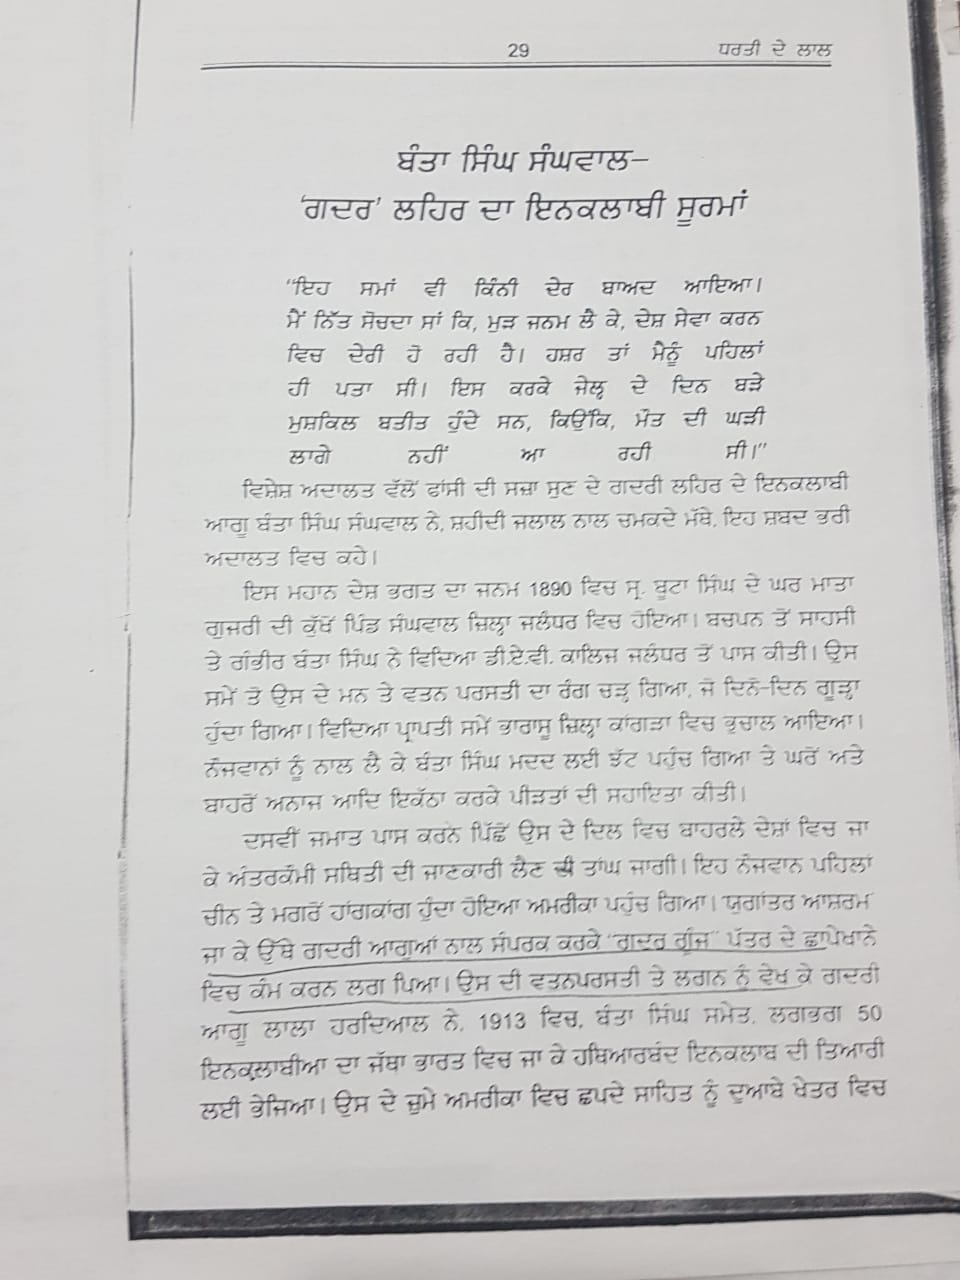 29 ਧਰਤੀ ਦੇ ਲਾਲ
ਬੰਤਾ ਸਿੰਘ ਸੰਘਵਾਲ–
'ਗਦਰ' ਲਹਿਰ ਦਾ ਇਨਕਲਾਬੀ ਸੂਰਮਾਂ
"ਇਹ ਸਮਾਂ ਵੀ ਕਿੰਨੀ ਦੇਰ ਬਾਅਦ ਆਇਆ।
ਮੈਂ ਨਿੱਤ ਸੋਚਦਾ ਸਾਂ ਕਿ, ਮੁੜ ਜਨਮ ਲੈ ਕੇ, ਦੇਸ਼ ਸੇਵਾ ਕਰਨ
ਵਿਚ ਦੇਰੀ ਹੋ ਰਹੀ ਹੈ। ਹਸ਼ਰ ਤਾਂ ਮੈਨੂੰ ਪਹਿਲਾਂ
ਹੀ ਪਤਾ ਸੀ। ਇਸ ਕਰਕੇ ਜੇਲ੍ਹ ਦੇ ਦਿਨ ਬੜੇ
ਮੁਸ਼ਕਿਲ ਬਤੀਤ ਹੁੰਦੇ ਸਨ, ਕਿਉਂਕਿ, ਮੌਤ ਦੀ ਘੜੀ
ਲਾਗੇ ਨਹੀਂ ਆ ਰਹੀ ਸੀ।"
ਵਿਸ਼ੇਸ਼ ਅਦਾਲਤ ਵੱਲੋਂ ਫਾਂਸੀ ਦੀ ਸਜ਼ਾ ਸੁਣ ਦੇ ਗਦਰੀ ਲਹਿਰ ਦੇ ਇਨਕਲਾਬੀ
ਆਗੂ ਬੰਤਾ ਸਿੰਘ ਸੰਘਵਾਲ ਨੇ, ਸ਼ਹੀਦੀ ਜਲਾਲ ਨਾਲ ਚਮਕਦੇ ਮੱਥੇ, ਇਹ ਸ਼ਬਦ ਭਰੀ
ਅਦਾਲਤ ਵਿਚ ਕਹੇ।
ਇਸ ਮਹਾਨ ਦੇਸ਼ ਭਗਤ ਦਾ ਜਨਮ 1890 ਵਿਚ ਸ੍ਰ. ਬੂਟਾ ਸਿੰਘ ਦੇ ਘਰ ਮਾਤਾ
ਗੁਜਰੀ ਦੀ ਕੁੱਖੋਂ ਪਿੰਡ ਸੰਘਵਾਲ ਜ਼ਿਲ੍ਹਾ ਜਲੰਧਰ ਵਿਚ ਹੋਇਆ। ਬਚਪਨ ਤੋਂ ਸਾਹਸੀ
ਤੇ ਗੰਭੀਰ ਬੰਤਾ ਸਿੰਘ ਨੇ ਵਿਦਿਆ ਡੀ.ਏ.ਵੀ. ਕਾਲਿਜ ਜਲੰਧਰ ਤੋਂ ਪਾਸ ਕੀਤੀ। ਉਸ
ਸਮੇਂ ਤੋਂ ਉਸ ਦੇ ਮਨ ਤੇ ਵਤਨ ਪਰਸਤੀ ਦਾ ਰੰਗ ਚੜ੍ਹ ਗਿਆ, ਜੋ ਦਿਨੋ-ਦਿਨ ਗੂੜ੍ਹਾ
ਹੁੰਦਾ ਗਿਆ। ਵਿਦਿਆ ਪ੍ਰਾਪਤੀ ਸਮੇਂ ਭਾਰਾਸੂ ਜ਼ਿਲ੍ਹਾ ਕਾਂਗੜਾ ਵਿਚ ਭੁਚਾਲ ਆਇਆ।
ਨੌਜਵਾਨਾਂ ਨੂੰ ਨਾਲ ਲੈ ਕੇ ਬੰਤਾ ਸਿੰਘ ਮਦਦ ਲਈ ਝੱਟ ਪਹੁੰਚ ਗਿਆ ਤੇ ਘਰੋਂ ਅਤੇ
ਬਾਹਰੋਂ ਅਨਾਜ ਆਦਿ ਇਕੱਠਾ ਕਰਕੇ ਪੀੜਤਾਂ ਦੀ ਸਹਾਇਤਾ ਕੀਤੀ।
ਦਸਵੀਂ ਜਮਾਤ ਪਾਸ ਕਰਨ ਪਿੱਛੋਂ ਉਸ ਦੇ ਦਿਲ ਵਿਚ ਬਾਹਰਲੇ ਦੇਸ਼ਾਂ ਵਿਚ ਜਾ
ਕੇ ਅੰਤਰਕੌਮੀ ਸਥਿਤੀ ਦੀ ਜਾਣਕਾਰੀ ਲੈਣ ਦੀ ਤਾਂਘ ਜਾਗੀ। ਇਹ ਨੌਜਵਾਨ ਪਹਿਲਾਂ
ਚੀਨ ਤੇ ਮਗਰੋਂ ਹਾਂਗਕਾਂਗ ਹੁੰਦਾ ਹੋਇਆ ਅਮਰੀਕਾ ਪਹੁੰਚ ਗਿਆ। ਯੁਗਾਂਤਰ ਆਸ਼ਰਮ
ਜਾ ਕੇ ਉੱਥੇ ਗਦਰੀ ਆਗੂਆਂ ਨਾਲ ਸੰਪਰਕ ਕਰਕੇ "ਗਦਰ ਗੂੰਜ" ਪੱਤਰ ਦੇ ਛਾਪੇਖਾਨੇ
ਵਿਚ ਕੰਮ ਕਰਨ ਲਗ ਪਿਆ। ਉਸ ਦੀ ਵਤਨਪਰਸਤੀ ਤੇ ਲਗਨ ਨੂੰ ਵੇਖ ਕੇ ਗਦਰੀ
ਆਗੂ ਲਾਲਾ ਹਰਦਿਆਲ ਨੇ, 1913 ਵਿਚ, ਬੰਤਾ ਸਿੰਘ ਸਮੇਤ, ਲਗਭਗ 50
ਇਨਕਲਾਬੀਆ ਦਾ ਜੱਥਾ ਭਾਰਤ ਵਿਚ ਜਾ ਕੇ ਹਥਿਆਰਬੰਦ ਇਨਕਲਾਬ ਦੀ ਤਿਆਰੀ
ਲਈ ਭੇਜਿਆ। ਉਸ ਦੇ ਜ਼ੁਮੇ ਅਮਰੀਕਾ ਵਿਚ ਛਪਦੇ ਸਾਹਿਤ ਨੂੰ ਦੁਆਬੇ ਖੇਤਰ ਵਿਚ